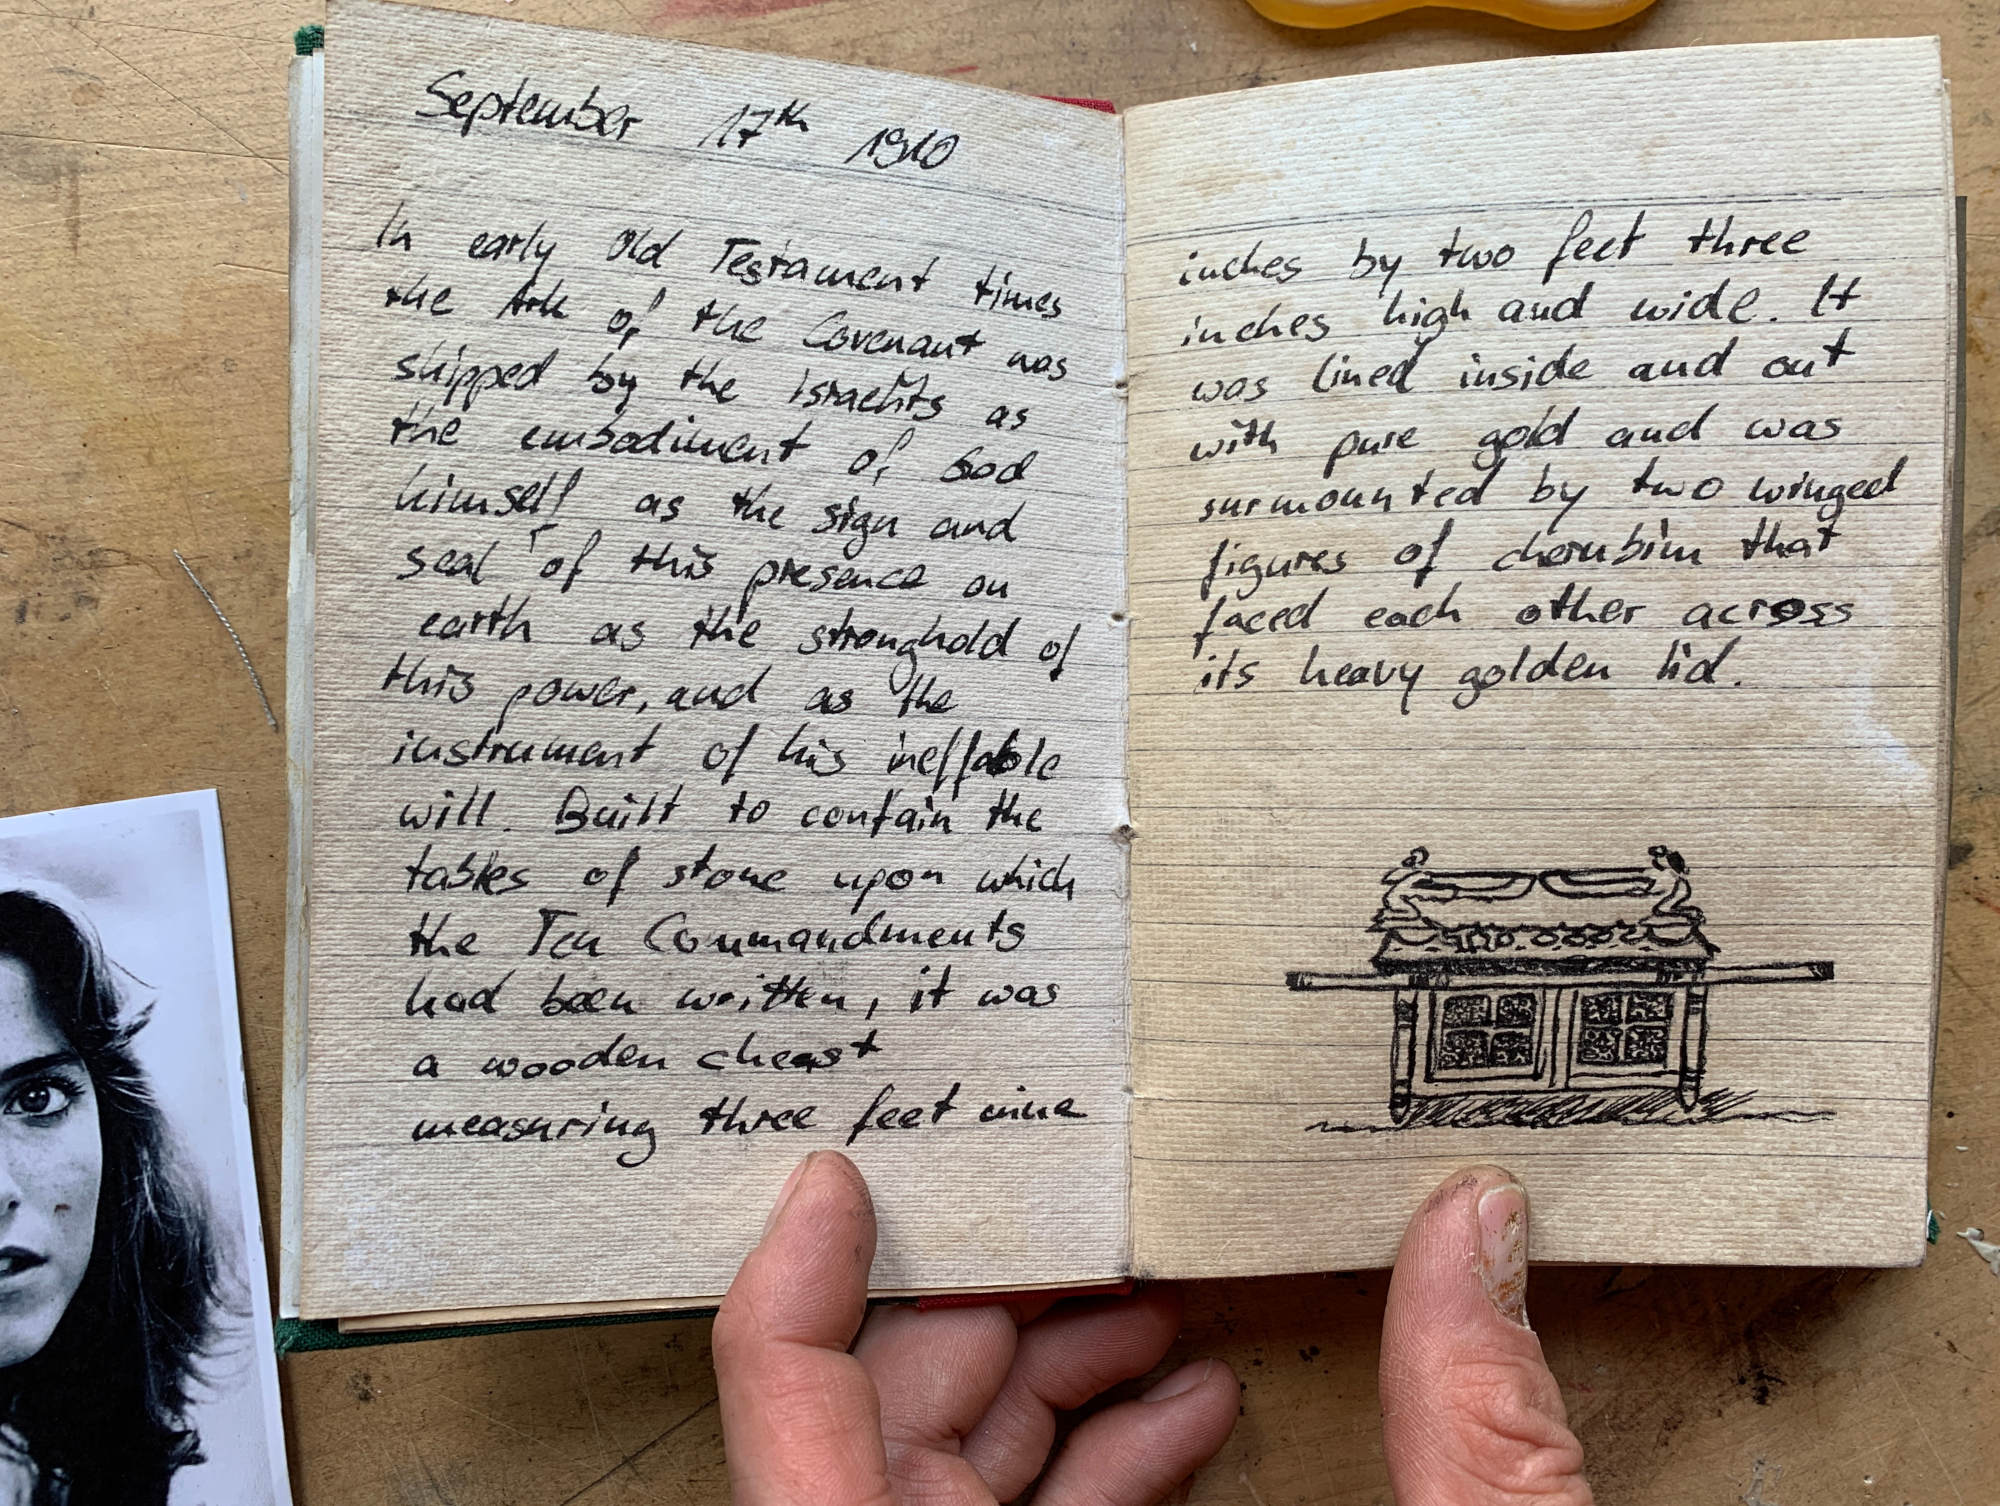 September 17th 1910
In early Old Testament times
the Ark of the Covenant was
shipped by the Israelits as
the embodiment of God
himself as the sign and
seal of this presence on
earth as the stronghold of
this power, and as the
instrument of his ineffable
will. Built to contain the
tables of stone upon which
the Ten Commandments
had been written, it was
a wooden cheast
measuring three feet nine
inches by two feet three
inches high and wide. It
was lined inside and out
with pure gold and was
surmounted by two winged
figures of cherubim that
faced each other across
its heavy golden lid.